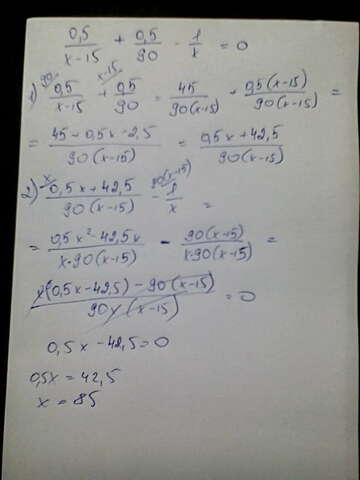 0,5/(x-15) + 0,5/90 - 1/x = 0
1) 90 0,5/(x-15) + x-15 0,5/90 = 45/90(x-15) + 0,5(x-15)/90(x-15) =
= 45+0,5x-2,5/90(x-15) = 0,5x+42,5/90(x-15)
2) x 0,5x+42,5/90(x-15) - 90(x-15) 1/x =
= 0,5x²-42,5x/x·90(x-15) - 90(x-15)/x·90(x-15) =
x(0,5x-42,5)-90(x-15)/90x(x-15) = 0
0,5x-42,5=0
0,5x = 42,5
x = 85